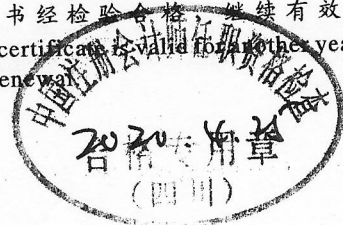 书经检验合格 继续有效
certificate is valid for another year
enewal
中国注册会计师任职资格检查
2020.4.
合格专用章
(四川)